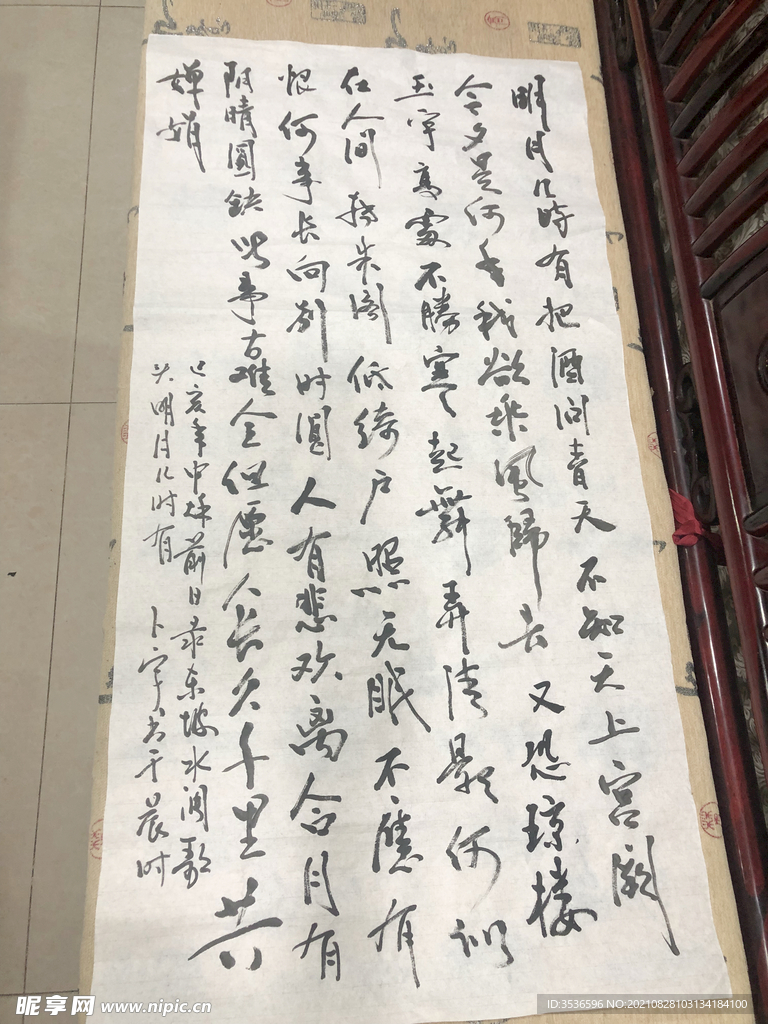 明月几時有把酒问青天不知天上宫阙
今夕是何年我欲乘风歸去又恐琼楼
玉宇高處不勝寒起舞弄清影何似
在人间转朱阁低绮户照无眠不應有
恨何事长向别时圓人有悲欢离合月有
阴晴圓缺此事古难全但愿人长久千里共
婵娟
己亥年中秋前日录东坡水调歌
头明月几时有 卜宇书于晨时
昵享网 www.nipic.cn
ID:3536596 NO:20210828103134184100